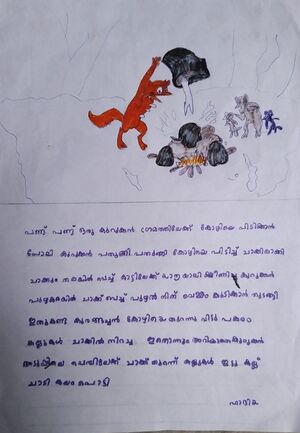 പണ്ട് പണ്ട് ഒരു കുറുക്കൻ ഗ്രാമത്തിലേക്ക് കോഴിയെ പിടിക്കാൻ
പോയി കുറുക്കൻ പതുങ്ങി പതുങ്ങി കോഴിയെ പിടിച്ച് ചാക്കിലാക്കി
ചാക്കും തലയിൽ വെച്ച് കാട്ടിലേക്ക് യാത്രയായി ക്ഷീണിച്ച കുറുക്കൻ
പുഴക്കരയിൽ ചാക്ക് വെച്ച് പുഴയിൽ നിന്ന് വെള്ളം കുടിക്കാൻ തുടങ്ങി
ഇതുകണ്ട കുരങ്ങച്ചൻ കോഴിയെ തുറന്നു വിട്ട് പകരം
കല്ലുകൾ ചാക്കിൽ നിറച്ചു ഇതൊന്നും അറിയാത്ത കുറുക്കൻ
അടുപ്പിലെ ചെമ്പിലേക്ക് ചാക്ക് തുറന്ന് കല്ലുകൾ ഇട്ടു കല്ല്
ചാടി കലം പൊട്ടി